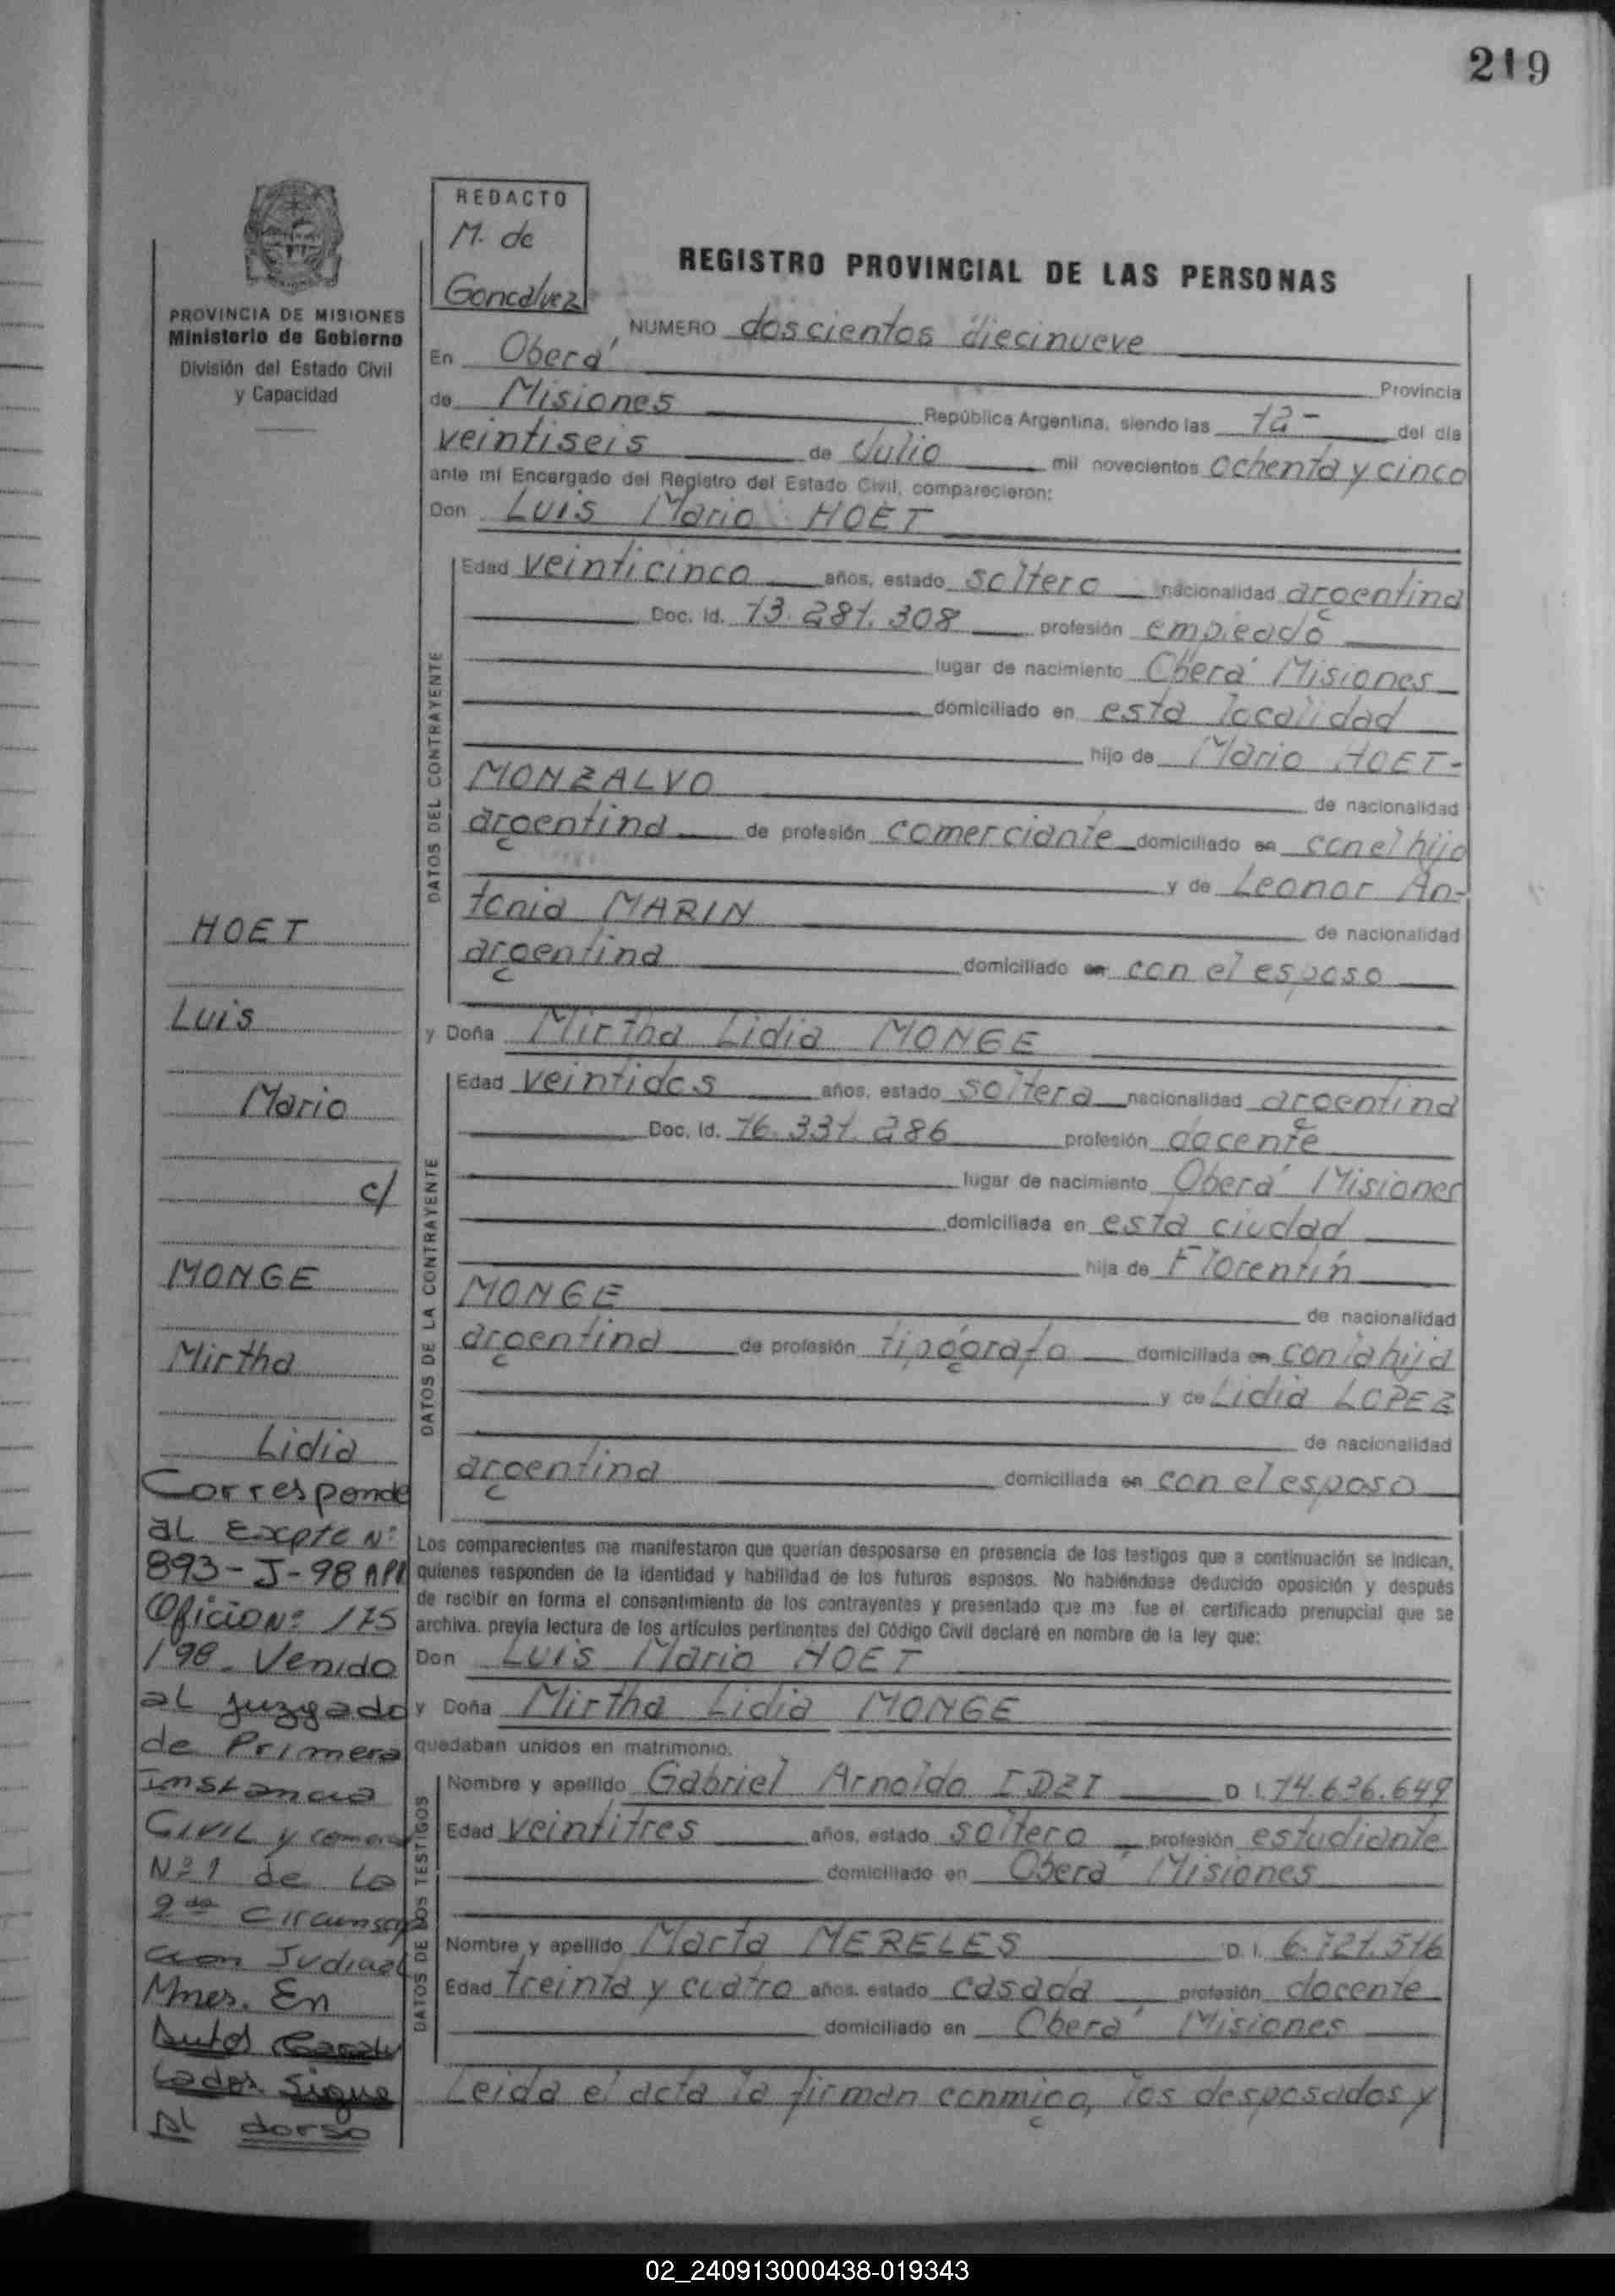 219
REDACTO
M. de
Goncalvez
REGISTRO PROVINCIAL DE LAS PERSONAS
PROVINCIA DE MISIONES
Ministerio de Gobierno
División del Estado Civil
y Capacidad
NUMERO doscientos diecinueve
En Oberá Provincia
de Misiones República Argentina, siendo las 12- del día
veintiseis de Julio mil novecientos ochenta y cinco
ante mí Encargado del Registro del Estado Civil, comparecieron:
Don Luis Mario HOET
DATOS DEL CONTRAYENTE
Edad veinticinco años, estado soltero nacionalidad argentina
Doc. Id. 13.281.308 profesión empleado
lugar de nacimiento Oberá Misiones
domiciliado en esta localidad
hijo de Mario HOET-
MONZALVO de nacionalidad
argentina de profesión comerciante domiciliado en con el hijo
y de Leonor An-
tonia MARIN de nacionalidad
argentina domiciliado en con el esposo
y Doña Mirtha Lidia MONGE
DATOS DE LA CONTRAYENTE
Edad veintidos años, estado soltera nacionalidad argentina
Doc. Id. 16.331.286 profesión docente
lugar de nacimiento Oberá Misiones
domiciliada en esta ciudad
hija de Florentín
MONGE de nacionalidad
argentina de profesión tipógrafo domiciliada en con la hija
y de Lidia LOPEZ
de nacionalidad
argentina domiciliada en con el esposo
Los comparecientes me manifestaron que querían desposarse en presencia de los testigos que a continuación se indican,
quienes responden de la identidad y habilidad de los futuros esposos. No habiéndose deducido oposición y después
de recibir en forma el consentimiento de los contrayentes y presentado que me fue el certificado prenupcial que se
archiva, previa lectura de los artículos pertinentes del Código Civil declaré en nombre de la ley que:
Don Luis Mario HOET
y Doña Mirtha Lidia MONGE
quedaban unidos en matrimonio.
DATOS DE LOS TESTIGOS
Nombre y apellido Gabriel Arnoldo IDZI D. I. 14.636.649
Edad veintitres años, estado soltero profesión estudiante
domiciliado en Oberá Misiones
Nombre y apellido Marta MERELES D. I. 6.721.516
Edad treinta y cuatro años, estado casada profesión docente
domiciliado en Oberá Misiones
Leida el acta la firman conmigo, los desposados y
HOET
Luis
Mario
c/
MONGE
Mirtha
Lidia
Corresponde
al Expte Nº
893-J-98
Oficio Nº 175
/98. Venido
al juzgado
de Primera
Instancia
Civil y
Nº 1 de la
2da
Judicial
Mnes. En
Autos
Sigue
al dorso
02_240913000438-019343